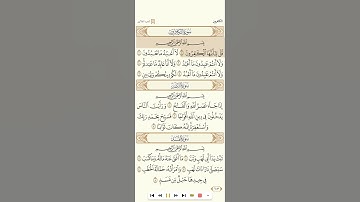 الكافرون
سُورَةُ الكَافِرُونَ
بِسْمِ اللَّهِ الرَّحْمَٰنِ الرَّحِيمِ
قُلْ يَا أَيُّهَا الْكَافِرُونَ ۝ لَا أَعْبُدُ مَا تَعْبُدُونَ ۝
وَلَا أَنتُمْ عَابِدُونَ مَا أَعْبُدُ ۝ وَلَا أَنَا عَابِدٌ مَّا عَبَدتُّمْ ۝
وَلَا أَنتُمْ عَابِدُونَ مَا أَعْبُدُ ۝ لَكُمْ دِينُكُمْ وَلِيَ دِينِ ۝
سُورَةُ النَّصْرِ
بِسْمِ اللَّهِ الرَّحْمَٰنِ الرَّحِيمِ
إِذَا جَاءَ نَصْرُ اللَّهِ وَالْفَتْحُ ۝ وَرَأَيْتَ النَّاسَ
يَدْخُلُونَ فِي دِينِ اللَّهِ أَفْوَاجًا ۝ فَسَبِّحْ بِحَمْدِ رَبِّكَ
وَاسْتَغْفِرْهُ إِنَّهُ كَانَ تَوَّابًا ۝
سُورَةُ المَسَدِ
بِسْمِ اللَّهِ الرَّحْمَٰنِ الرَّحِيمِ
تَبَّتْ يَدَا أَبِي لَهَبٍ وَتَبَّ ۝ مَا أَغْنَىٰ عَنْهُ مَالُهُ وَمَا كَسَبَ ۝
سَيَصْلَىٰ نَارًا ذَاتَ لَهَبٍ ۝ وَامْرَأَتُهُ حَمَّالَةَ الْحَطَبِ ۝
فِي جِيدِهَا حَبْلٌ مِّن مَّسَدٍ ۝